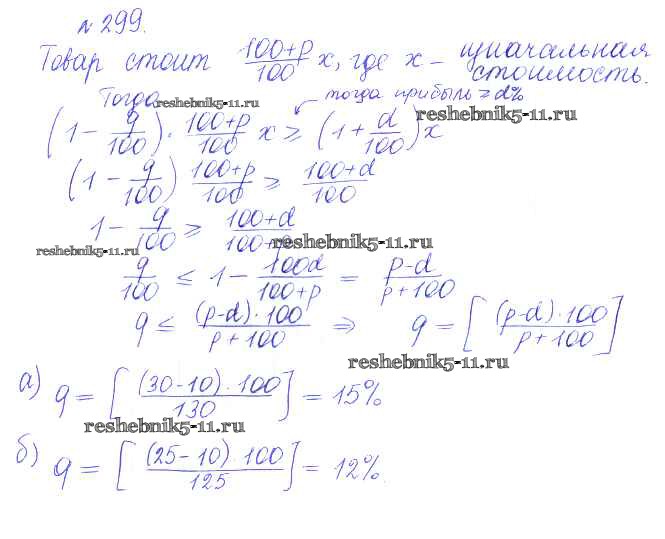 № 299.
Товар стоит (100+p)/100 x, где x – изначальная стоимость.
Тогда reshebnik5-11.ru тогда прибыль ≥ d%
reshebnik5-11.ru
(1 – q/100) · (100+p)/100 x ≥ (1 + d/100)x
(1 – q/100) (100+p)/100 ≥ (100+d)/100
1 – q/100 ≥ (100+d)/(100+p)
reshebnik5-11.ru
reshebnik5-11.ru
q/100 ≤ 1 – 100d/(100+p) = (p-d)/(p+100)
q ≤ (p-d)·100/(p+100) ⇒ q = [(p-d)·100/(p+100)]
reshebnik5-11.ru
а) q = [(30-10)·100/130] = 15%
reshebnik5-11.ru
б) q = [(25-10)·100/125] = 12%